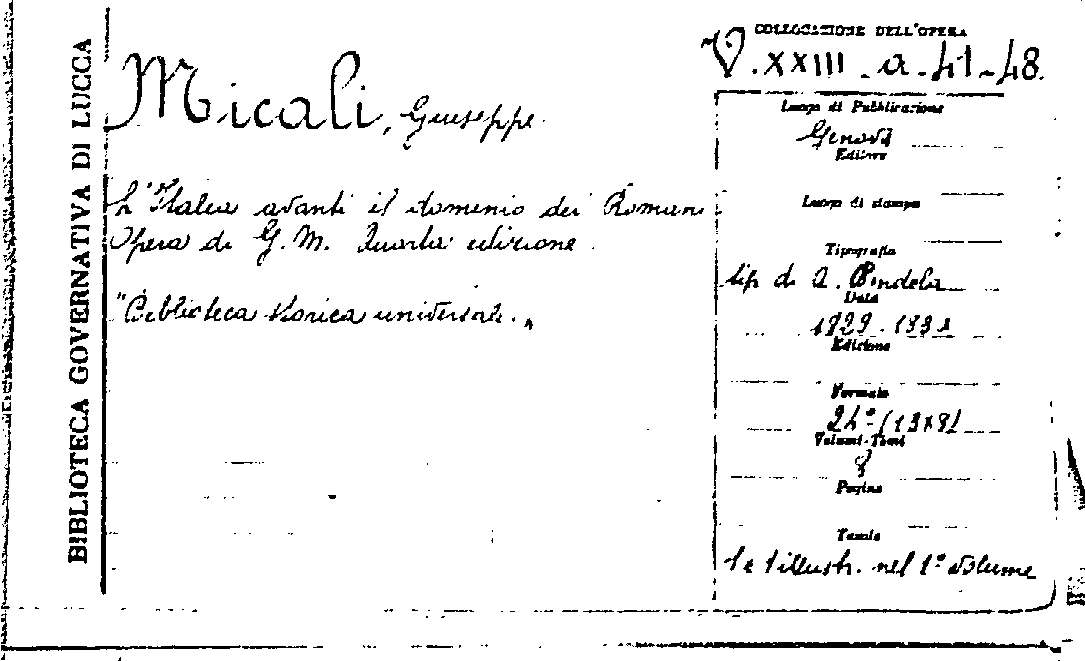 BIBLIOTECA GOVERNATIVA DI LUCCA
Micali, Giuseppe
L'Italia avanti il dominio dei Romani
Opera di G. M. Quarta edizione.
"Biblioteca storica universale."
COLLOCAZIONE DELL'OPERA
V. XXIII. a. 41-48.
Luogo di Pubblicazione
Genova
Editore
Luogo di stampa
Tipografia
tip. di A. Pendola
Data
1829-1831
Edizione
Formato
24° (13x8)
Volumi-Tomi
8
Pagine
Tavole
illustr. nel 1° volume